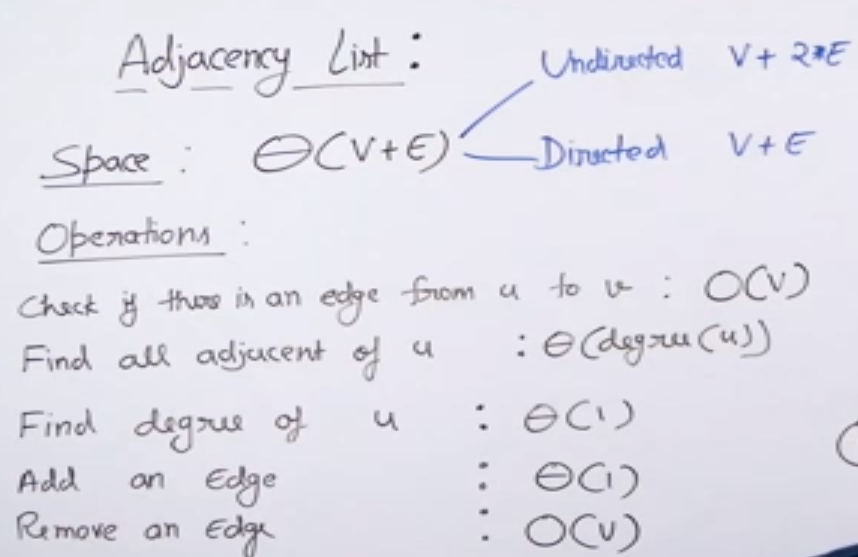 Adjacency List :
Undirected V + 2*E
Space : Θ(V+E)
Directed V + E
Operations :
Check if there is an edge from u to v : O(V)
Find all adjacent of u : Θ(degree(u))
Find degree of u : Θ(1)
Add an Edge : Θ(1)
Remove an Edge : O(V)